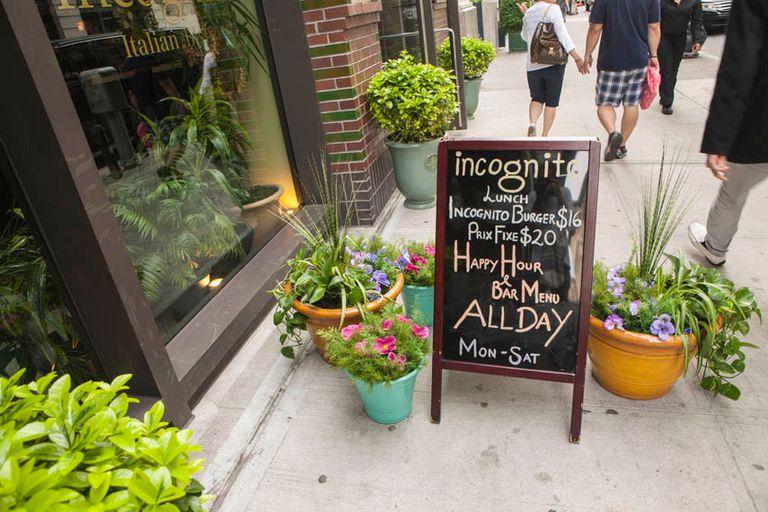 incognito
Italian
incognito
LUNCH
INCOGNITO BURGER $16
PRIX FIXE $20
HAPPY HOUR
&
BAR MENU
ALL DAY
MON-SAT